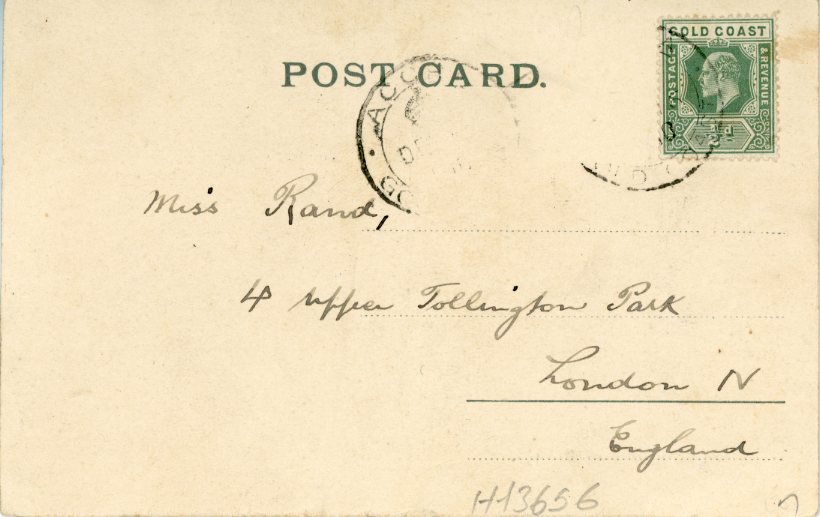 POST CARD.
GOLD COAST
POSTAGE
& REVENUE
½d
ACC
Miss Rand,
4 Upper Tollington Park
London N
England
H13656